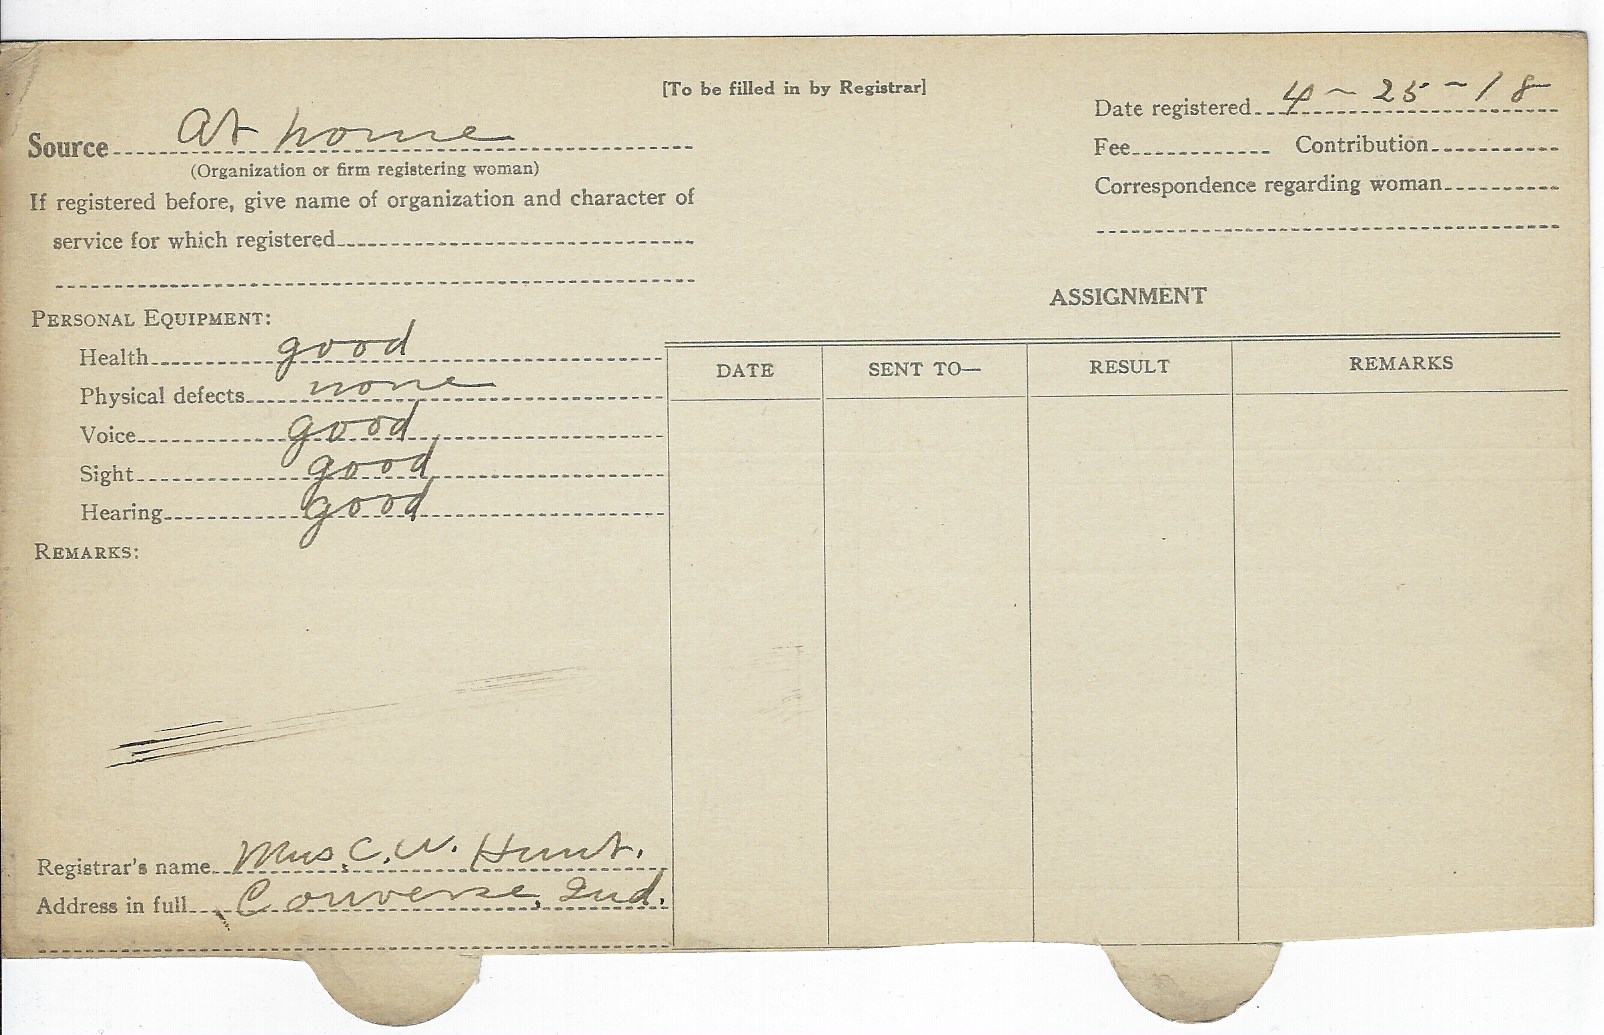 [To be filled in by Registrar]
Source At home
(Organization or firm registering woman)
If registered before, give name of organization and character of
service for which registered
PERSONAL EQUIPMENT:
Health good
Physical defects none
Voice good
Sight good
Hearing good
REMARKS:
Registrar's name Mrs. C. W. Hunt.
Address in full Converse, Ind.
Date registered 4-25-18
Fee Contribution
Correspondence regarding woman
ASSIGNMENT
DATE SENT TO— RESULT REMARKS